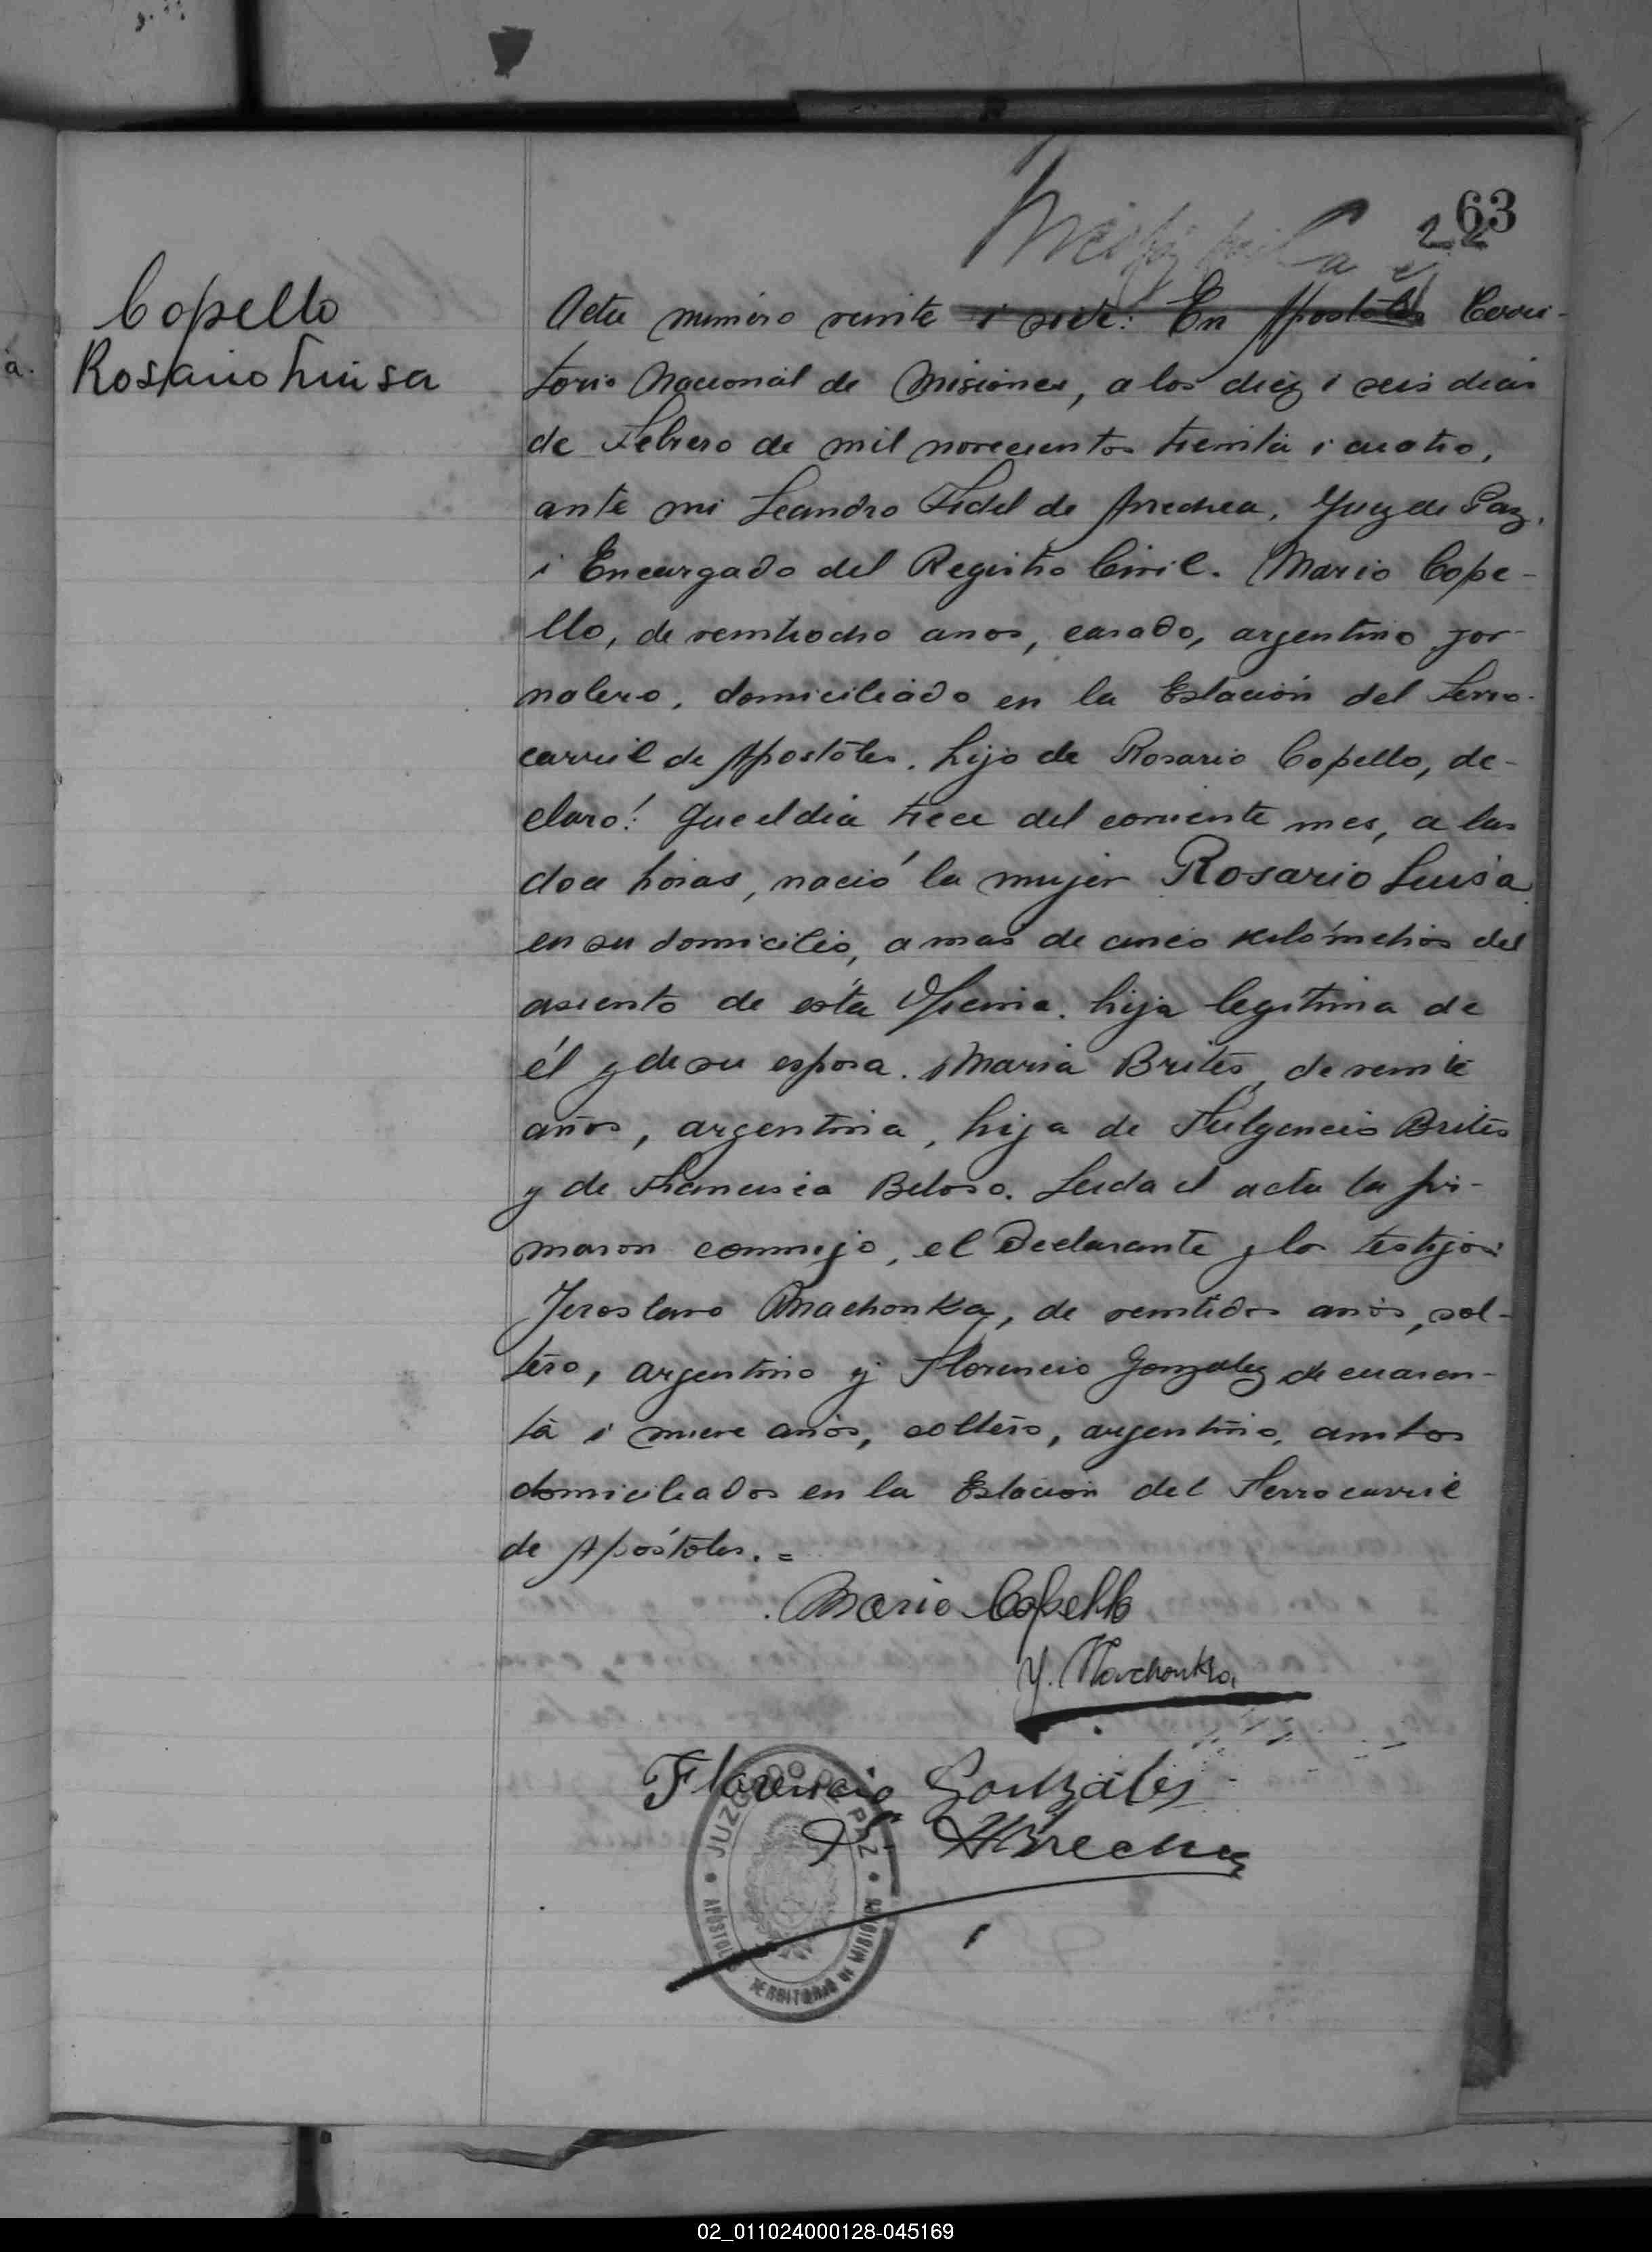 63
22
Copello
Rosario Luisa
a.
Acta número veinte i siete: En Apóstoles Terri-
torio Nacional de Misiones, a los diez i seis dias
de Febrero de mil novecientos treinta i cuatro,
ante mi Leandro Fidel de Arrechea, Juez de Paz,
i Encargado del Registro Civil. Mario Cope-
llo, de veintiocho anos, casado, argentino, jor-
nalero, domiciliado en la Estación del Ferro-
carril de Apóstoles, hijo de Rosario Copello, de-
claró! Que el dia trece del corriente mes, a las
doce horas, nació la mujer Rosario Luisa
en su domicilio, a mas de cinco kilómetros del
asiento de esta Oficina, hija legitima de
él y de su esposa. Maria Brites, de veinte
años, argentina, hija de Fulgencio Brites
y de Francisca Beloso. Leida el acta la fir-
maron conmigo, el Declarante y los testigos:
Jeroslavo Machonka, de veintidos anos, sol-
tero, argentino y Florencio Gonzalez de cuaren-
ta i nueve anos, soltero, argentino, ambos
domiciliados en la Estacion del Ferrocarril
de Apóstoles. =
Mario Copello
Y. Machonka
Florencio Gonzáles
L. F. Arrechea
JUZGADO DE PAZ
APÓSTOLES TERRITORIO DE MISIONES
02_011024000128-045169